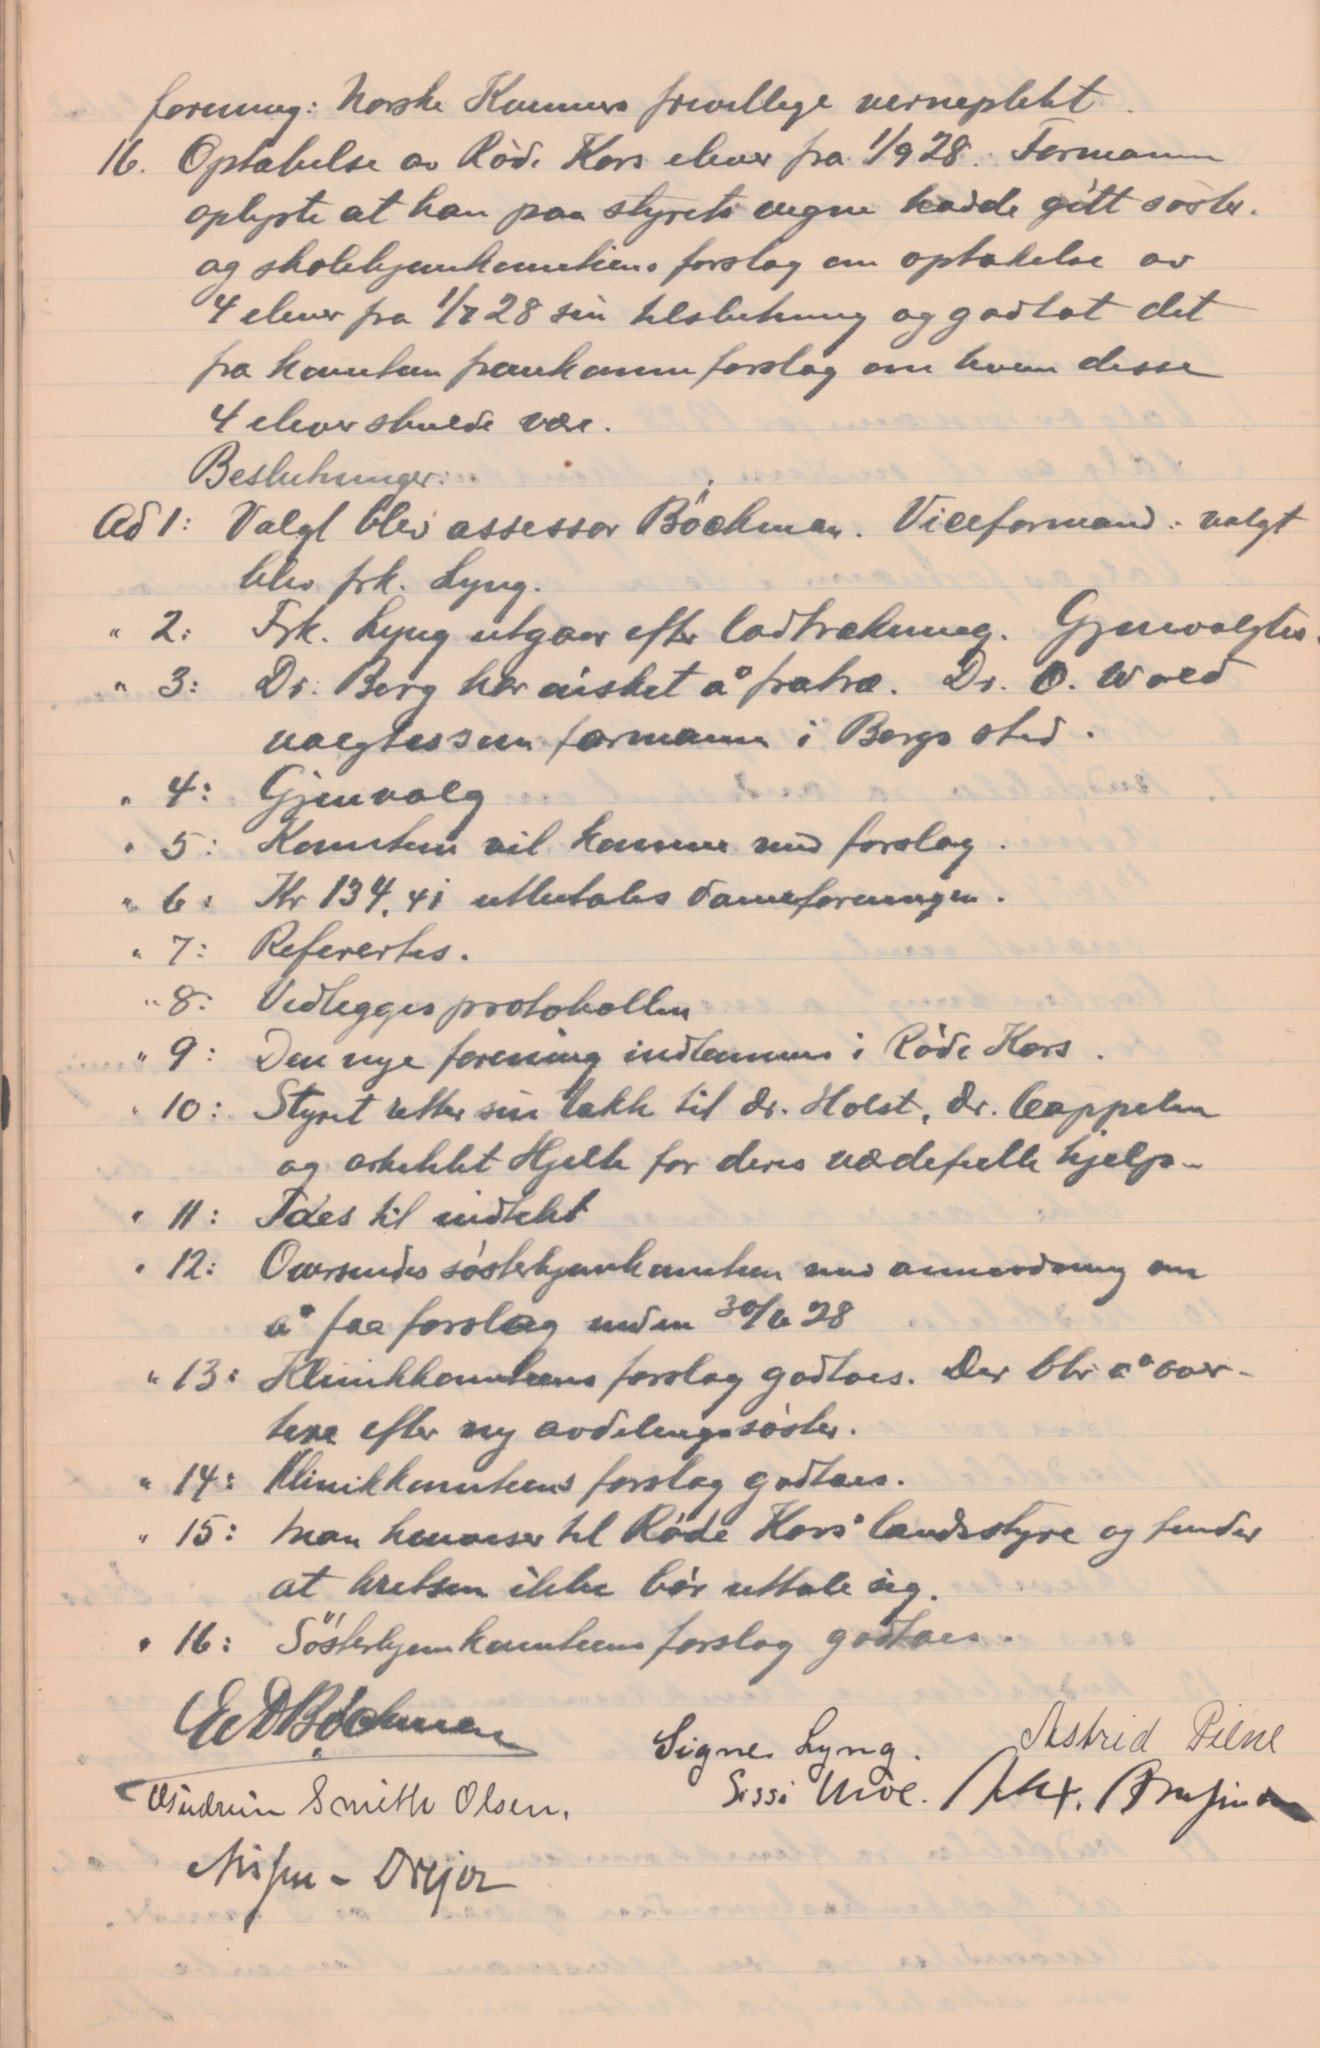 forening: Norske Kvinners frivillige verneplikt.
16. Optakelse av Röde Kors elever fra 1/9 28. Formann
oplyste at han paa styrets vegne hadde gitt söster-
og skolehjemkomiteens forslag om optakelse av
4 elever fra 1/7 28 sin tilslutning og godtat det
fra komiteen framkomne forslag om hvem disse
4 elever skulde være.
Beslutninger:
Ad 1: Valgt blev assessor Böckman. Viceformand: valgt
blev frk. Lyng.
" 2: Frk. Lyng utgaar efter lodtrækning. Gjenvalgtes.
" 3: Dr. Berg har önsket å fratræ. Dr. O. Wold
valgtes som formann i Bergs sted.
" 4: Gjenvalg
" 5: Komiteen vil komme med forslag.
" 6: Kr 134,41 utbetales dameforeningen.
" 7: Referertes.
" 8: Vedlegges protokollen
" 9: Den nye forening indlemmes i Röde Kors.
" 10: Styret retter sin takk til dr. Holst, dr. Cappelen
og arkitekt Hjelte for deres værdefulle hjelp.
" 11: Taes til indtekt
" 12: Oversendes sösterhjemkomiteen med anmodning om
å faa forslag inden 30/6 28
" 13: Klinikkomiteens forslag godtaes. Der blir å aver-
tere efter ny avdelingssöster.
" 14: Klinikkomiteens forslag godtaes.
" 15: Man henviser til Röde Kors' landsstyre og finder
at kretsen ikke bör uttale sig.
" 16: Sösterhjemkomiteens forslag godtaes.
Böckman
Signe Lyng. Astrid Piene
Gudrun Smith Olsen. Sissi
Nissen-Drejer